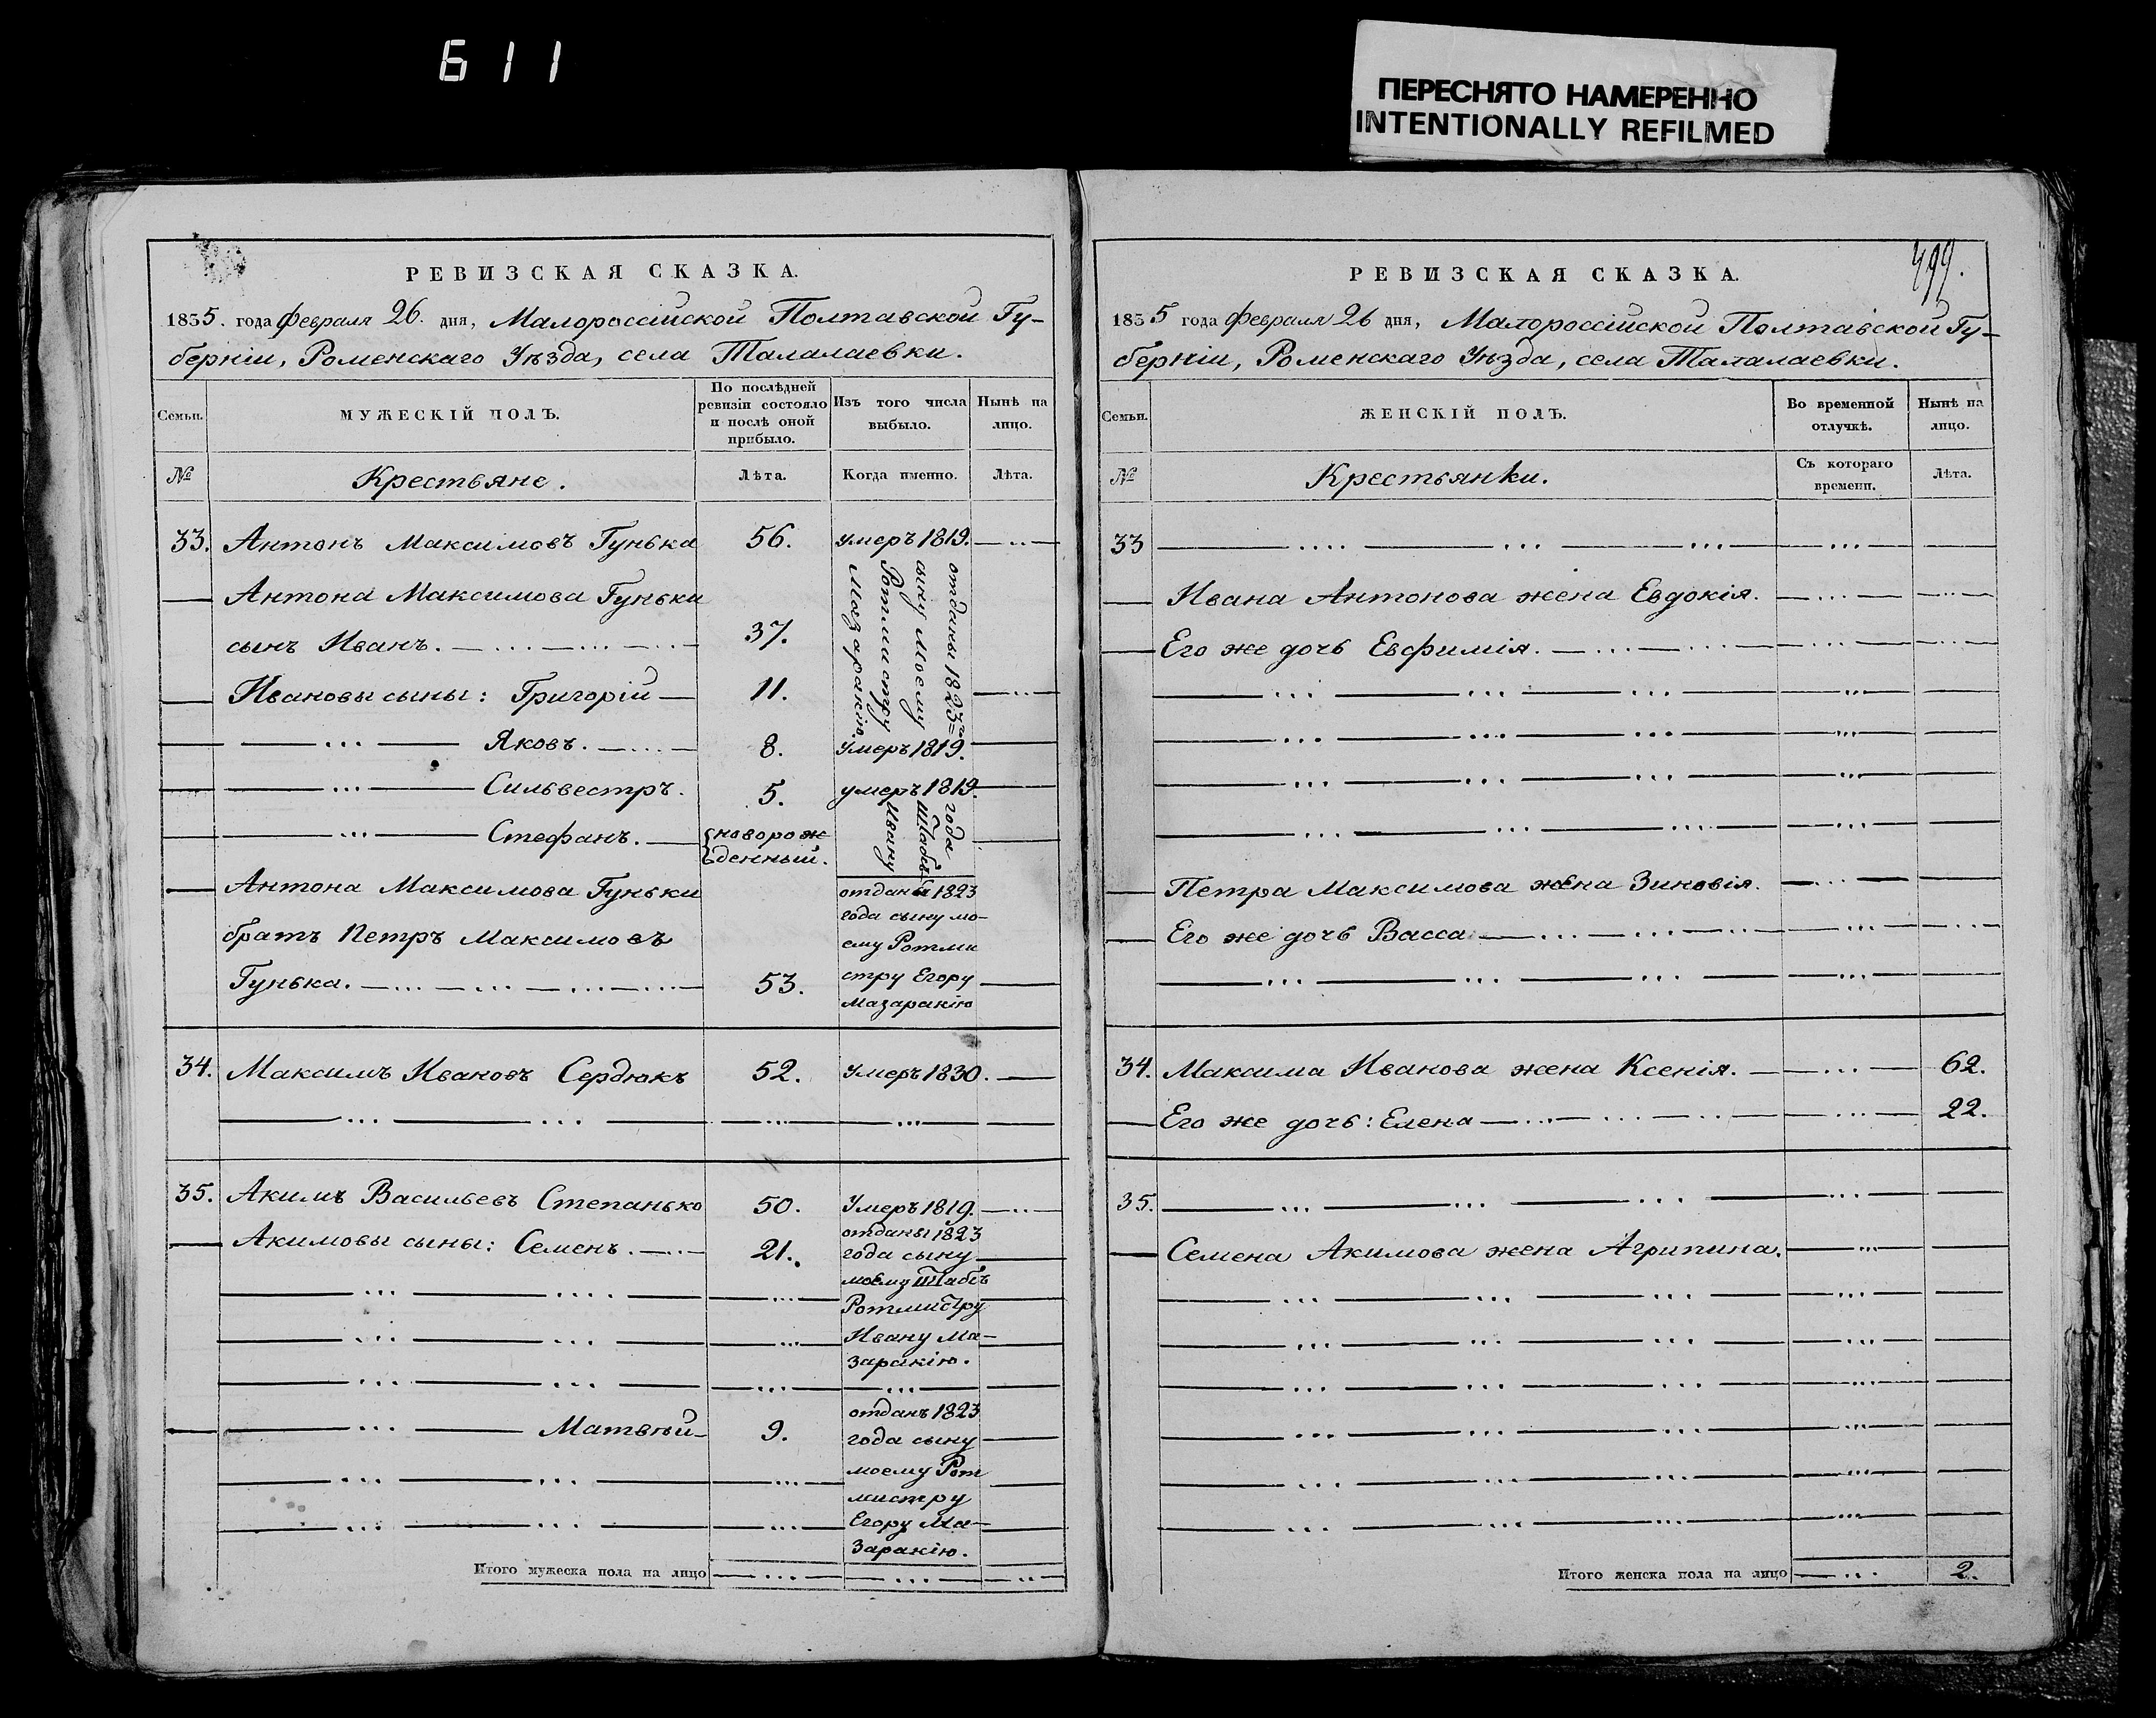 611
ПЕРЕСНЯТО НАМЕРЕННО
INTENTIONALLY REFILMED
РЕВИЗСКАЯ СКАЗКА.
1835. года Февраля 26. дня, Малороссійской Полтавской Гу-
берніи, Роменскаго Уѣзда, села Талалаевки.
Семьи.
МУЖЕСКІЙ ПОЛЪ.
По послѣдней
ревизіи состояло
и послѣ оной
прибыло.
Изъ того числа
выбыло.
Нынѣ на
лицо.
№
Крестьяне.
Лѣта.
Когда именно.
Лѣта.
33. Антонъ Максимовъ Гунька 56. умеръ 1819.
Антона Максимова Гуньки
сынъ Иванъ. 37.
Ивановы сыны: Григорій 11.
отданы 1823го
года
сыну моему
Штабъ
Ротмистру
Ивану
Мазаракію.
Яковъ. 8. Умеръ 1819.
Сильвестръ. 5. умеръ 1819.
Стефанъ. новорож
денный.
Антона Максимова Гуньки
братъ Петръ Максимовъ
Гунька. 53.
отданы 1823
года сыну мо-
ему Ротми
стру Егору
Мазаракію
34. Максимъ Ивановъ Сердюкъ 52. Умеръ 1830.
35. Акимъ Васильевъ Степанько 50. Умеръ 1819.
Акимовы сыны: Семенъ. 21.
отданы 1823
года сыну
моему Штабъ
Ротмистру
Ивану Ма-
заракію.
Матвѣй 9.
отданъ 1823
года сыну
моему Рот
мистру
Егору Ма-
заракію.
Итого мужеска пола на лицо
499.
РЕВИЗСКАЯ СКАЗКА.
1835 года Февраля 26 дня, Малороссійской Полтавской Гу-
берніи, Роменскаго Уѣзда, села Талалаевки.
Семьи.
ЖЕНСКІЙ ПОЛЪ.
Во временной
отлучкѣ.
Нынѣ на
лицо.
№
Крестьянки.
Съ котораго
времени.
Лѣта.
33
Ивана Антонова жена Евдокія.
Его же дочь Евфимія.
Петра Максимова жена Зиновія.
Его же дочь Васса
34. Максима Иванова жена Ксенія. 62.
Его же дочь: Елена 22.
35.
Семена Акимова жена Агрипина.
Итого женска пола на лицо 2.